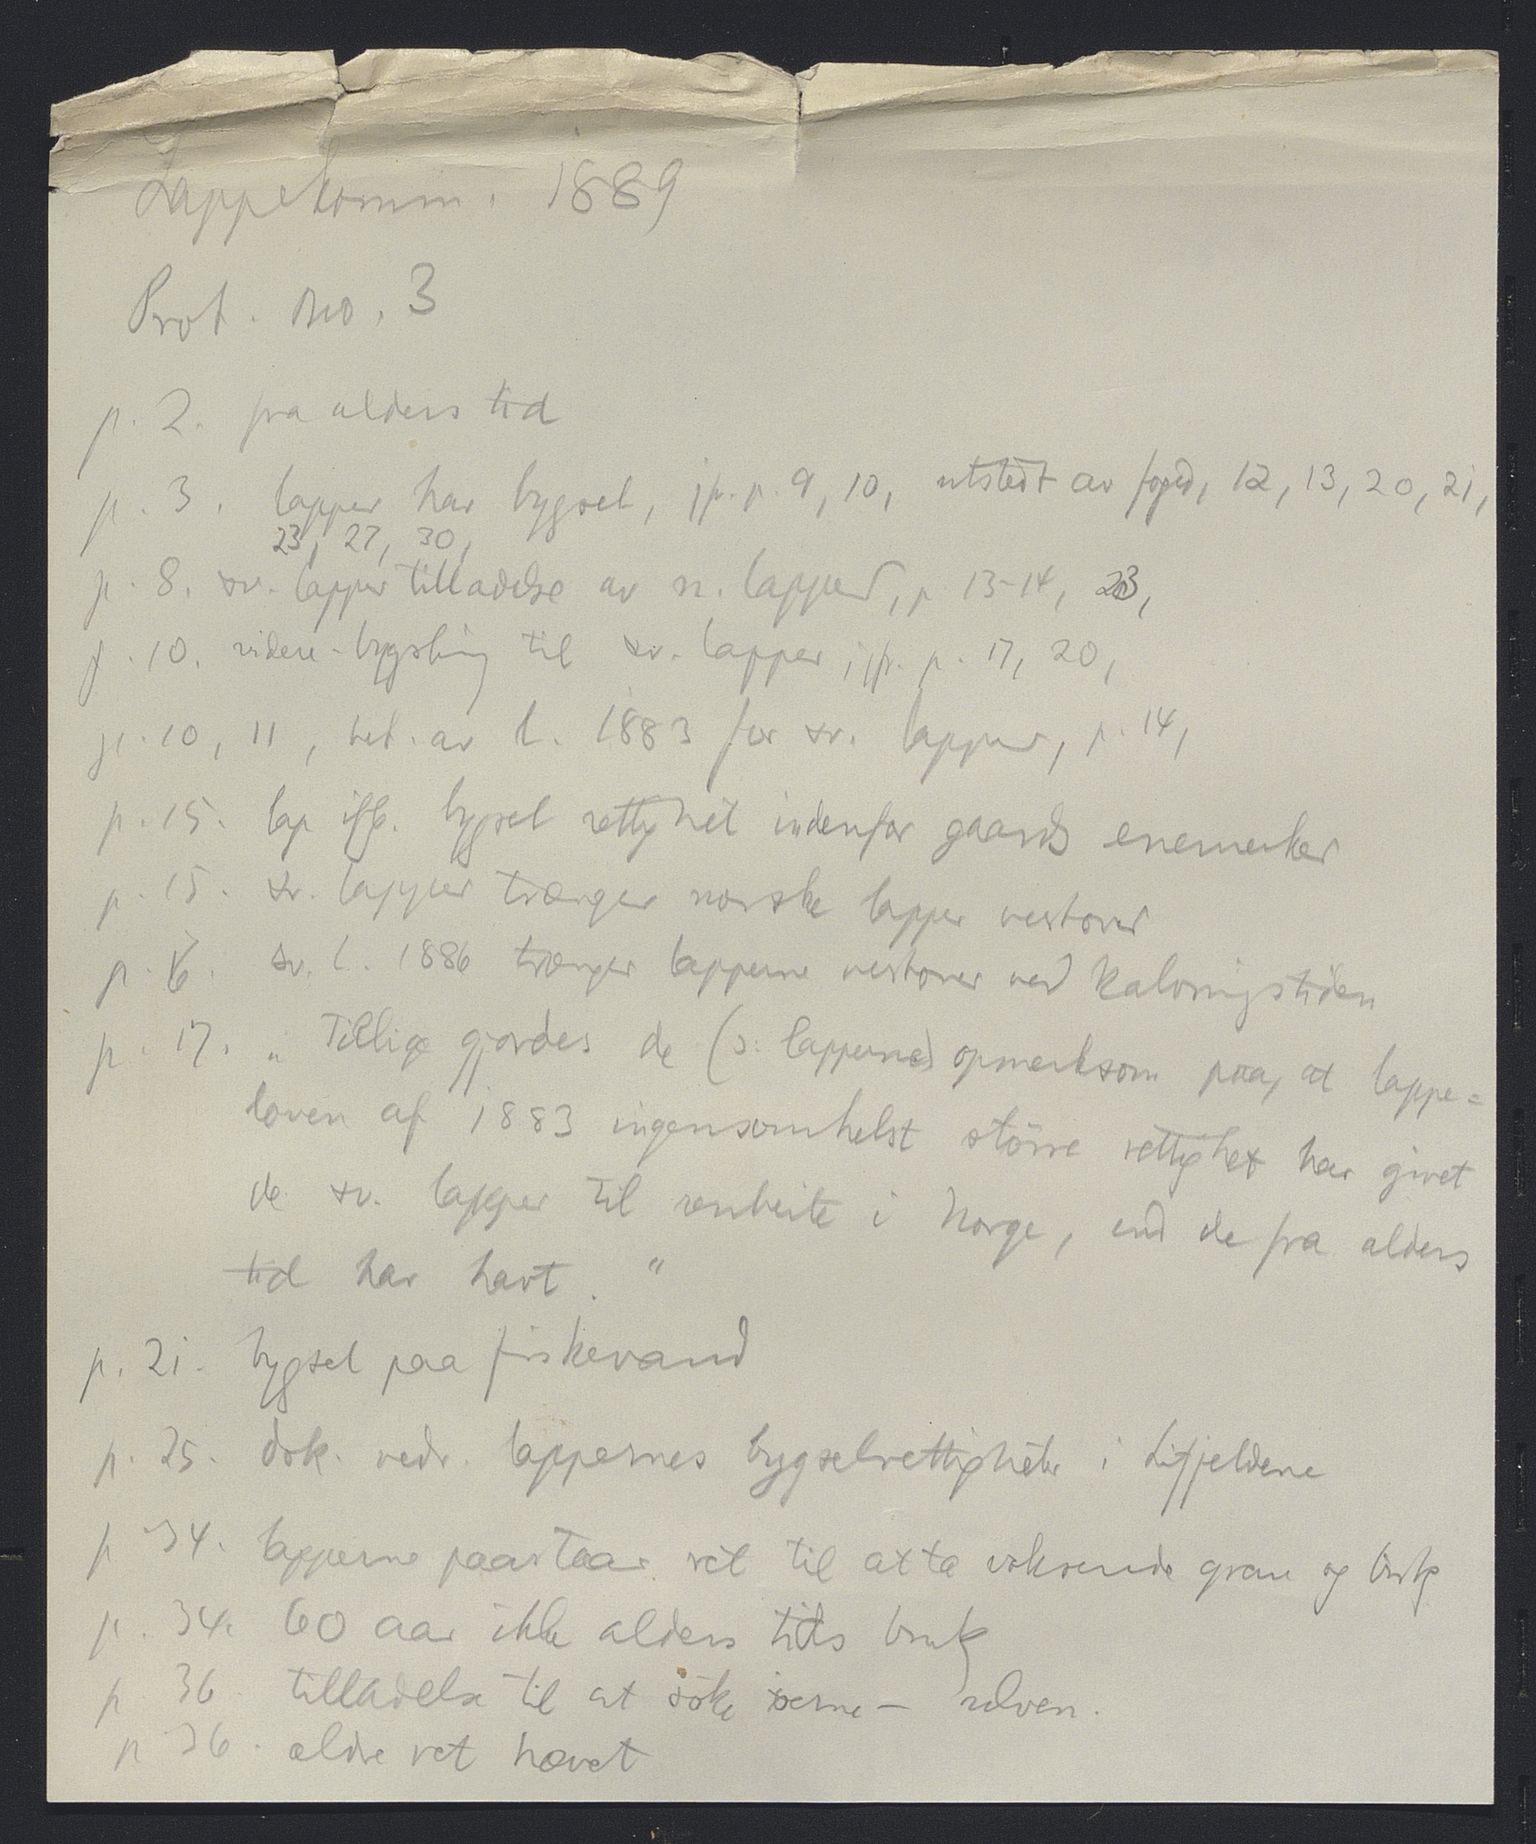 Lappekomm. 1889
Prot. no. 3
p. 2. fra alders tid
p. 3. lapper har bygsel, jfr. p. 9, 10, utstedt av foged, 12, 13, 20, 21,
23, 27, 30,
p. 8. sv. lapper tilladelse av n. lapper, p 13-14, 23,
p. 10. videre-bygsling til sv. lapper, jfr. p. 17, 20,
p. 10, 11, bet. av l. 1883 for sv. lapper, p. 14,
p. 15. lap iflg. bygsel rettighet indenfor gaards enemerker
p. 15. sv. lapper trænger norske lapper vestover
p. 16. sv. l. 1886 trænger lapperne vestover ved kalvningstiden
p. 17. „ Tillige gjordes de (ɔ: lapperne) opmerksom paa, at lappe=
loven af 1883 ingensomhelst större rettighet har givet
de sv. lapper til renbeite i Norge, end de fra alders
tid har havt. "
p. 21. bygsel paa fiskevand
p. 25. dok. vedr. lappernes bygselrettigheter i Lifjeldene
p 34. lapperne paastaar ret til at ta voksende gran og birk
p. 34. 60 aar ikke alders tids bruk
p 36. tilladelse til at söke öerne - elven.
p 36. eldre ret hævet